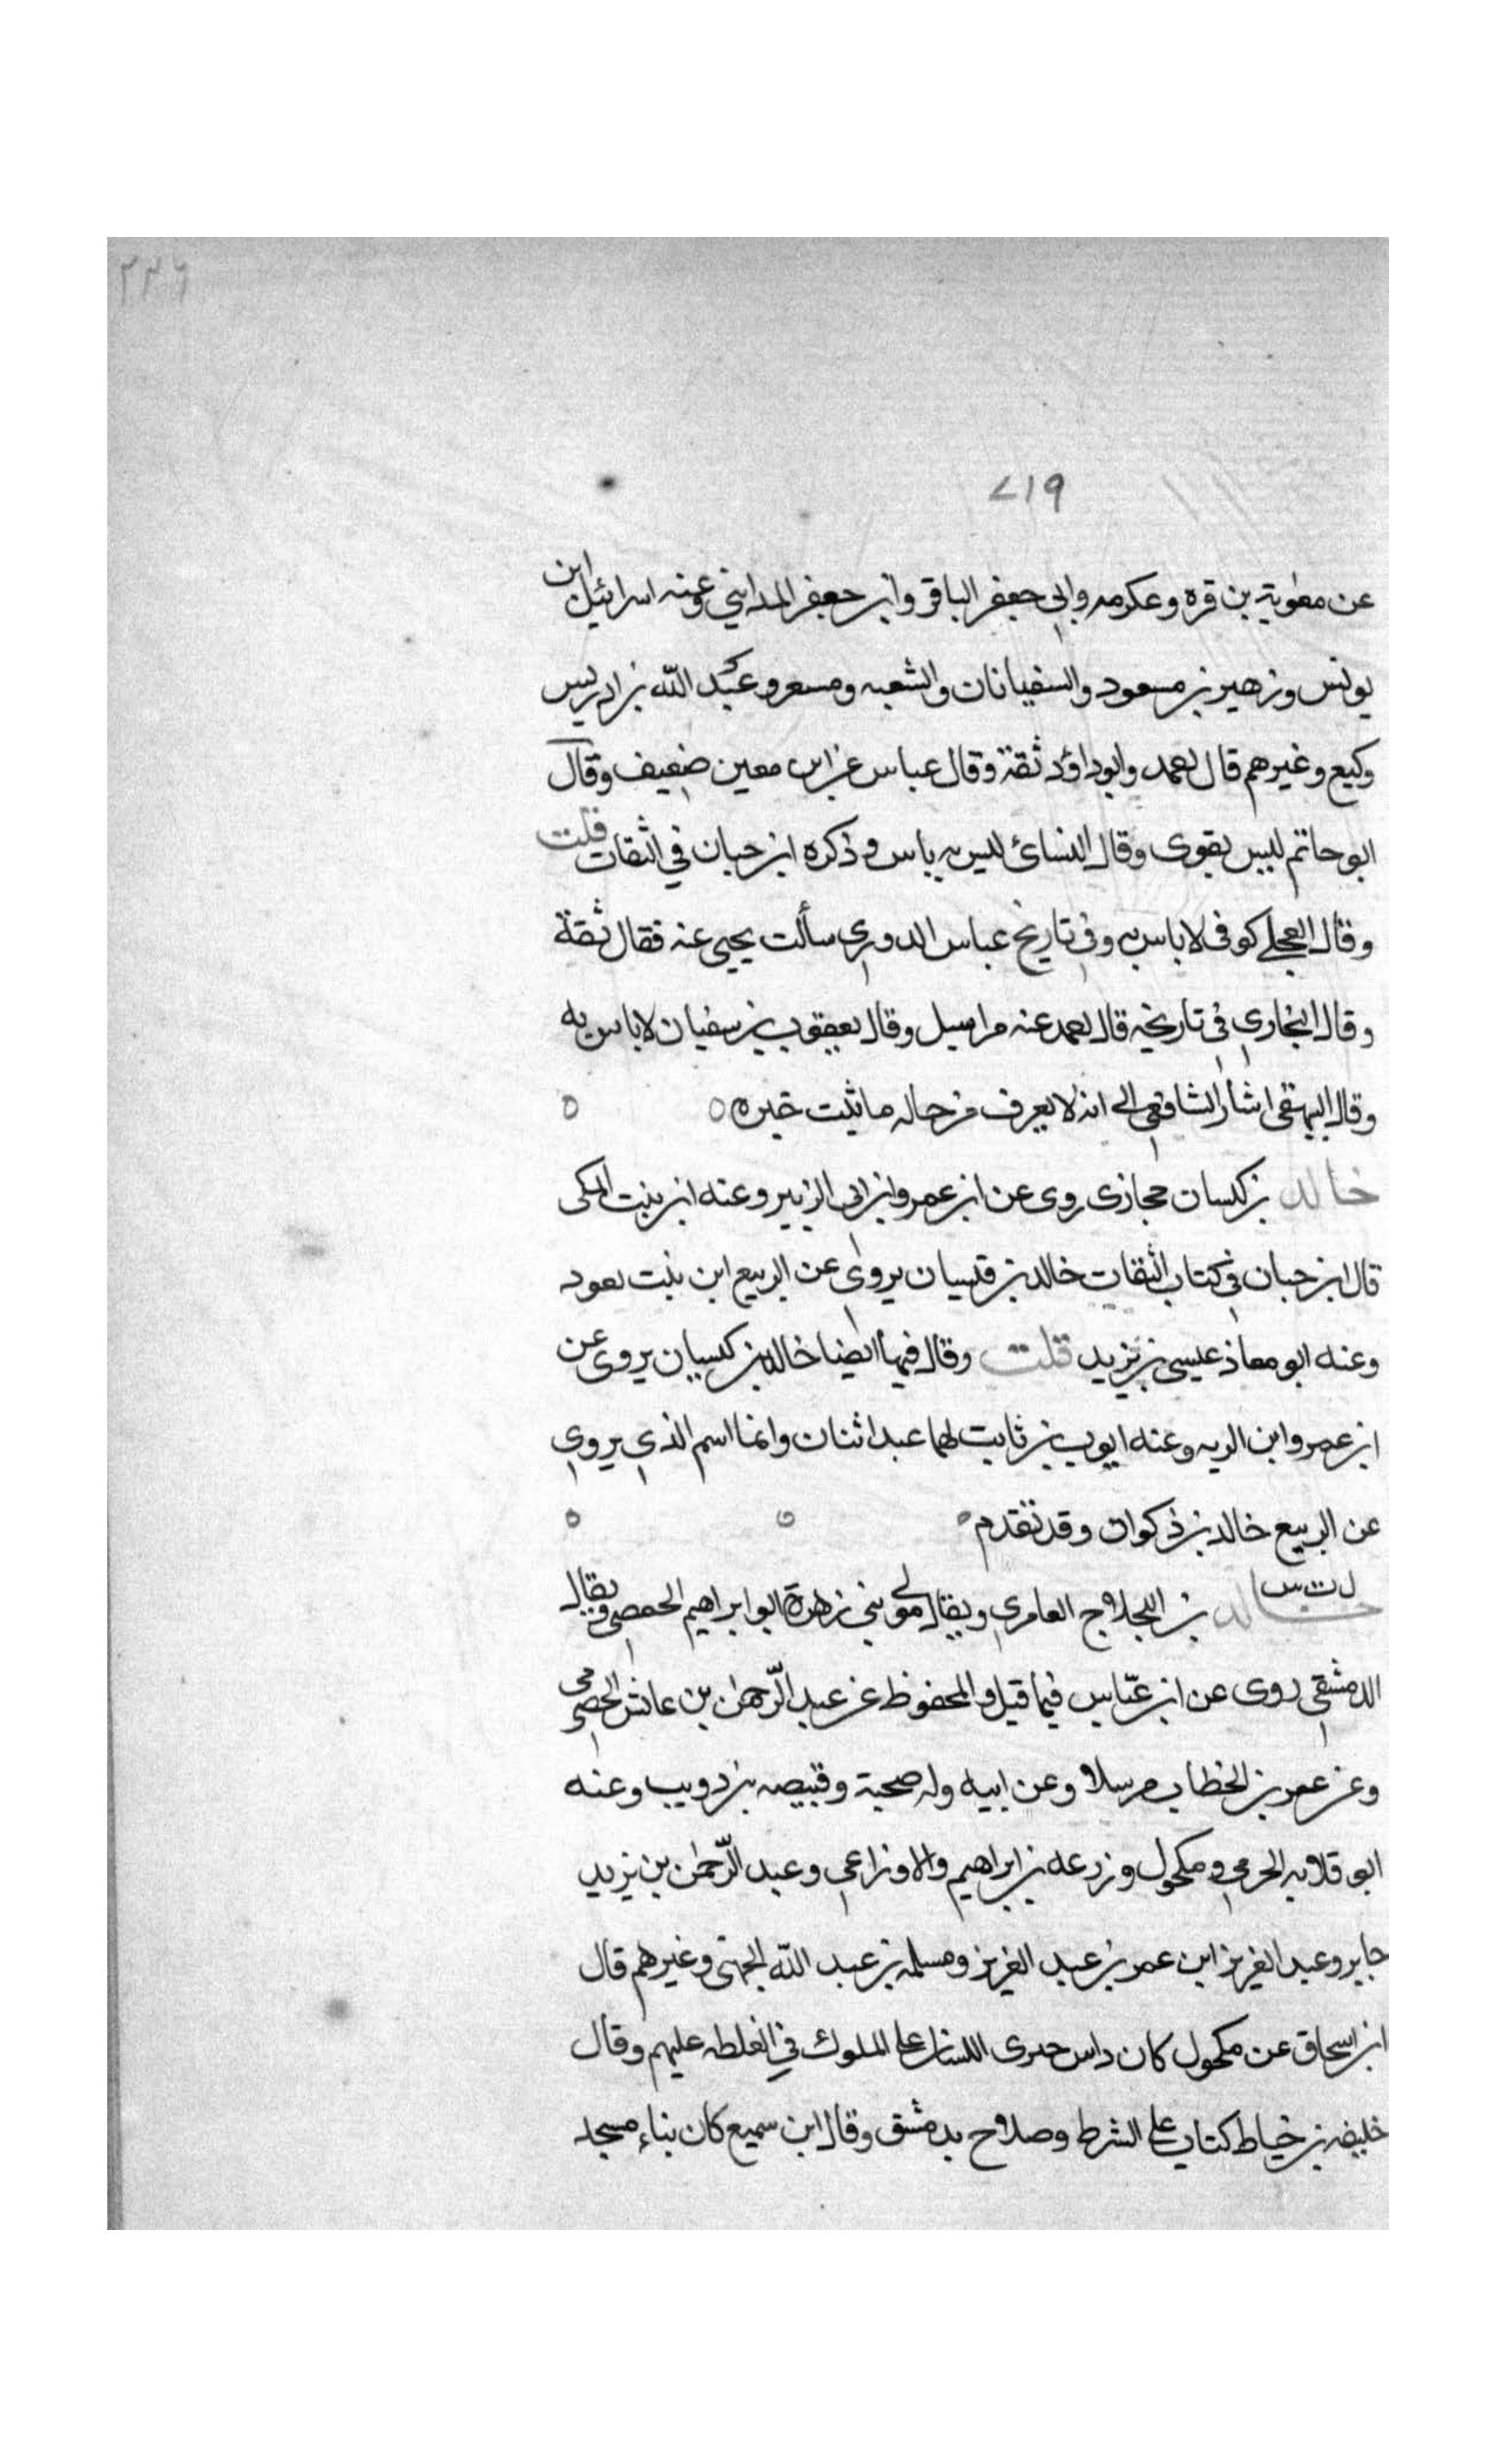 ٢٢٦
٧١٩
عن معٰوية بن قره وعكرمه وابى جعفر الباقر وابن جعفر المدايني وعنه اسرائيل ابن
يونس وزهير بن مسعود والسفيانان والشعبه ومسعر وعبد الله بن ادريس
وكيع وغيرهم قال احمد وابوداؤد ثقة وقال عباس عن ابن معين ضعيف وقال
ابوحاتم ليس بقوى وقال النسائ ليس به باس وذكره ابن حبان في الثقات قلت
وقال العجلي كوفى لا باس به وفى تاريخ عباس الدوري سألت يحيى عنه فقال ثقة
وقال البخاري في تاريخه قال احمد عنه مراسيل وقال يعقوب بن سفيان لا باس به
وقال البيهقى اشار الشافعي الى انه لا يعرف من حاله ما يثبت خبره ه ه
خالد بن كسان حجازى روى عن ابن عمر وابن ابى الزبير وعنه ابن بنت المكى
قال ابن حبان في كتاب الثقات خالد بن قيسان يروى عن الربيع ابن بنت معود
وعنه ابو معاذ عيسى بن يزيد قلت وقال فيها ايضا خالد بن كيسان يروى عن
ابن عمر وابن الربه وعنه ايوب بن ثابت لهما عبد اثنان وانما اسم الذي يروي
عن الربيع خالد بن ذكوان وقد تقدم ه ه ه
د ت س
خالد بن اللجلاج العامري ويقال مولى بني زهرة ابو ابراهيم الحمصي ويقال
الدمشقي روى عن ابن عبّاس فيما قيل والمحفوظ عن عبد الرّحمٰن بن عائش الحضرمي
وعن عمر بن الخطاب مرسلا وعن ابيه وله صحبة وقبيصه بن دويب وعنه
ابو قلابه الحرمي ومكحول وزرعه بن ابراهيم والاوزاعي وعبد الرّحمٰن بن يزيد
جابر وعبد العزيز ابن عمر بن عبد العزيز ومسلمه بن عبد الله الجهني وغيرهم قال
ابن اسحاق عن مكحول كان داس حرى اللسان على الملوك في الغلطه عليهم وقال
خليفه بن خياط كتاب على الشرط وصلاح بدمشق وقال ابن سميع كان بناء مسجد